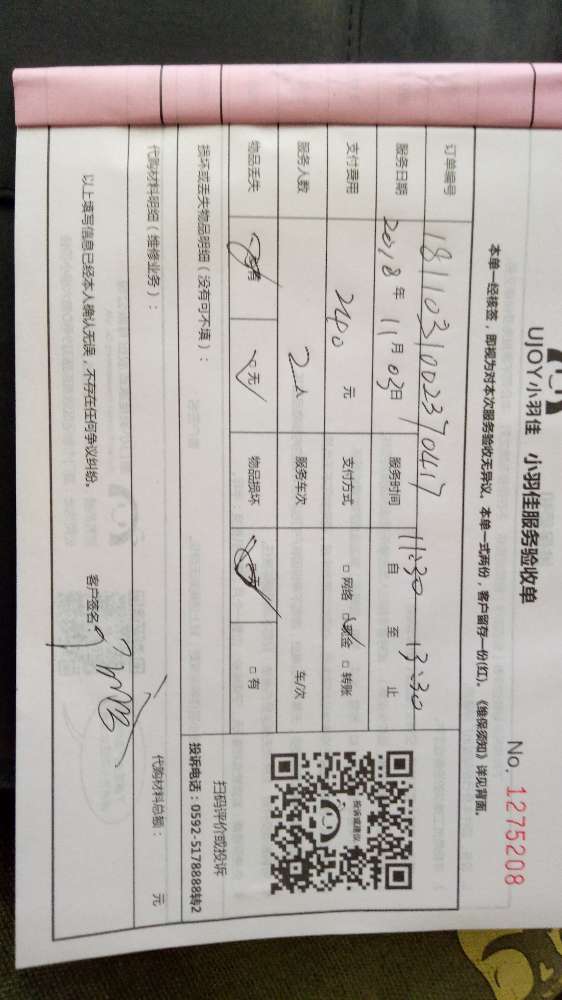 UJOY小羽佳 小羽佳服务验收单
No. 1275208
本单一经核签，即视为对本次服务验收无异议。本单一式两份，客户留存一份(红)。《维保须知》详见背面。
订单编号 1811031002370417
服务日期 2018年11月03日 服务时间 11:30 自 至 13:30 止
支付费用 240 元 支付方式 □网络 □现金 □转账
服务人数 2人 服务车次 车/次
物品丢失 □有 □无 物品损坏 □无 □有
损坏或丢失物品明细（没有可不填）：
扫码评价或投诉
投诉电话：0592-5178888转2
投诉或建议
代购材料明细（维修业务）：
代购材料总额： 元
以上填写信息已经本人确认无误，不存在任何争议纠纷。 客户签名：